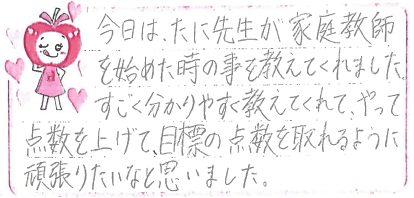 今日は、たに先生が家庭教師
を始めた時の事を教えてくれました。
すごく分かりやすく教えてくれて、やって
点数を上げて、目標の点数を取れるように
頑張りたいなと思いました。